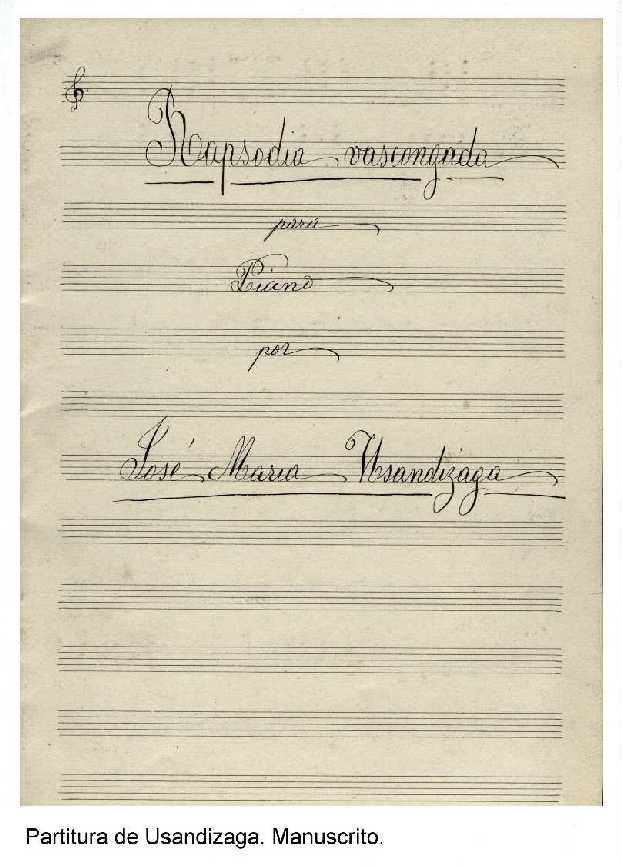 Rapsodia vascongada
para
Piano
por
José Maria Usandizaga
Partitura de Usandizaga. Manuscrito.